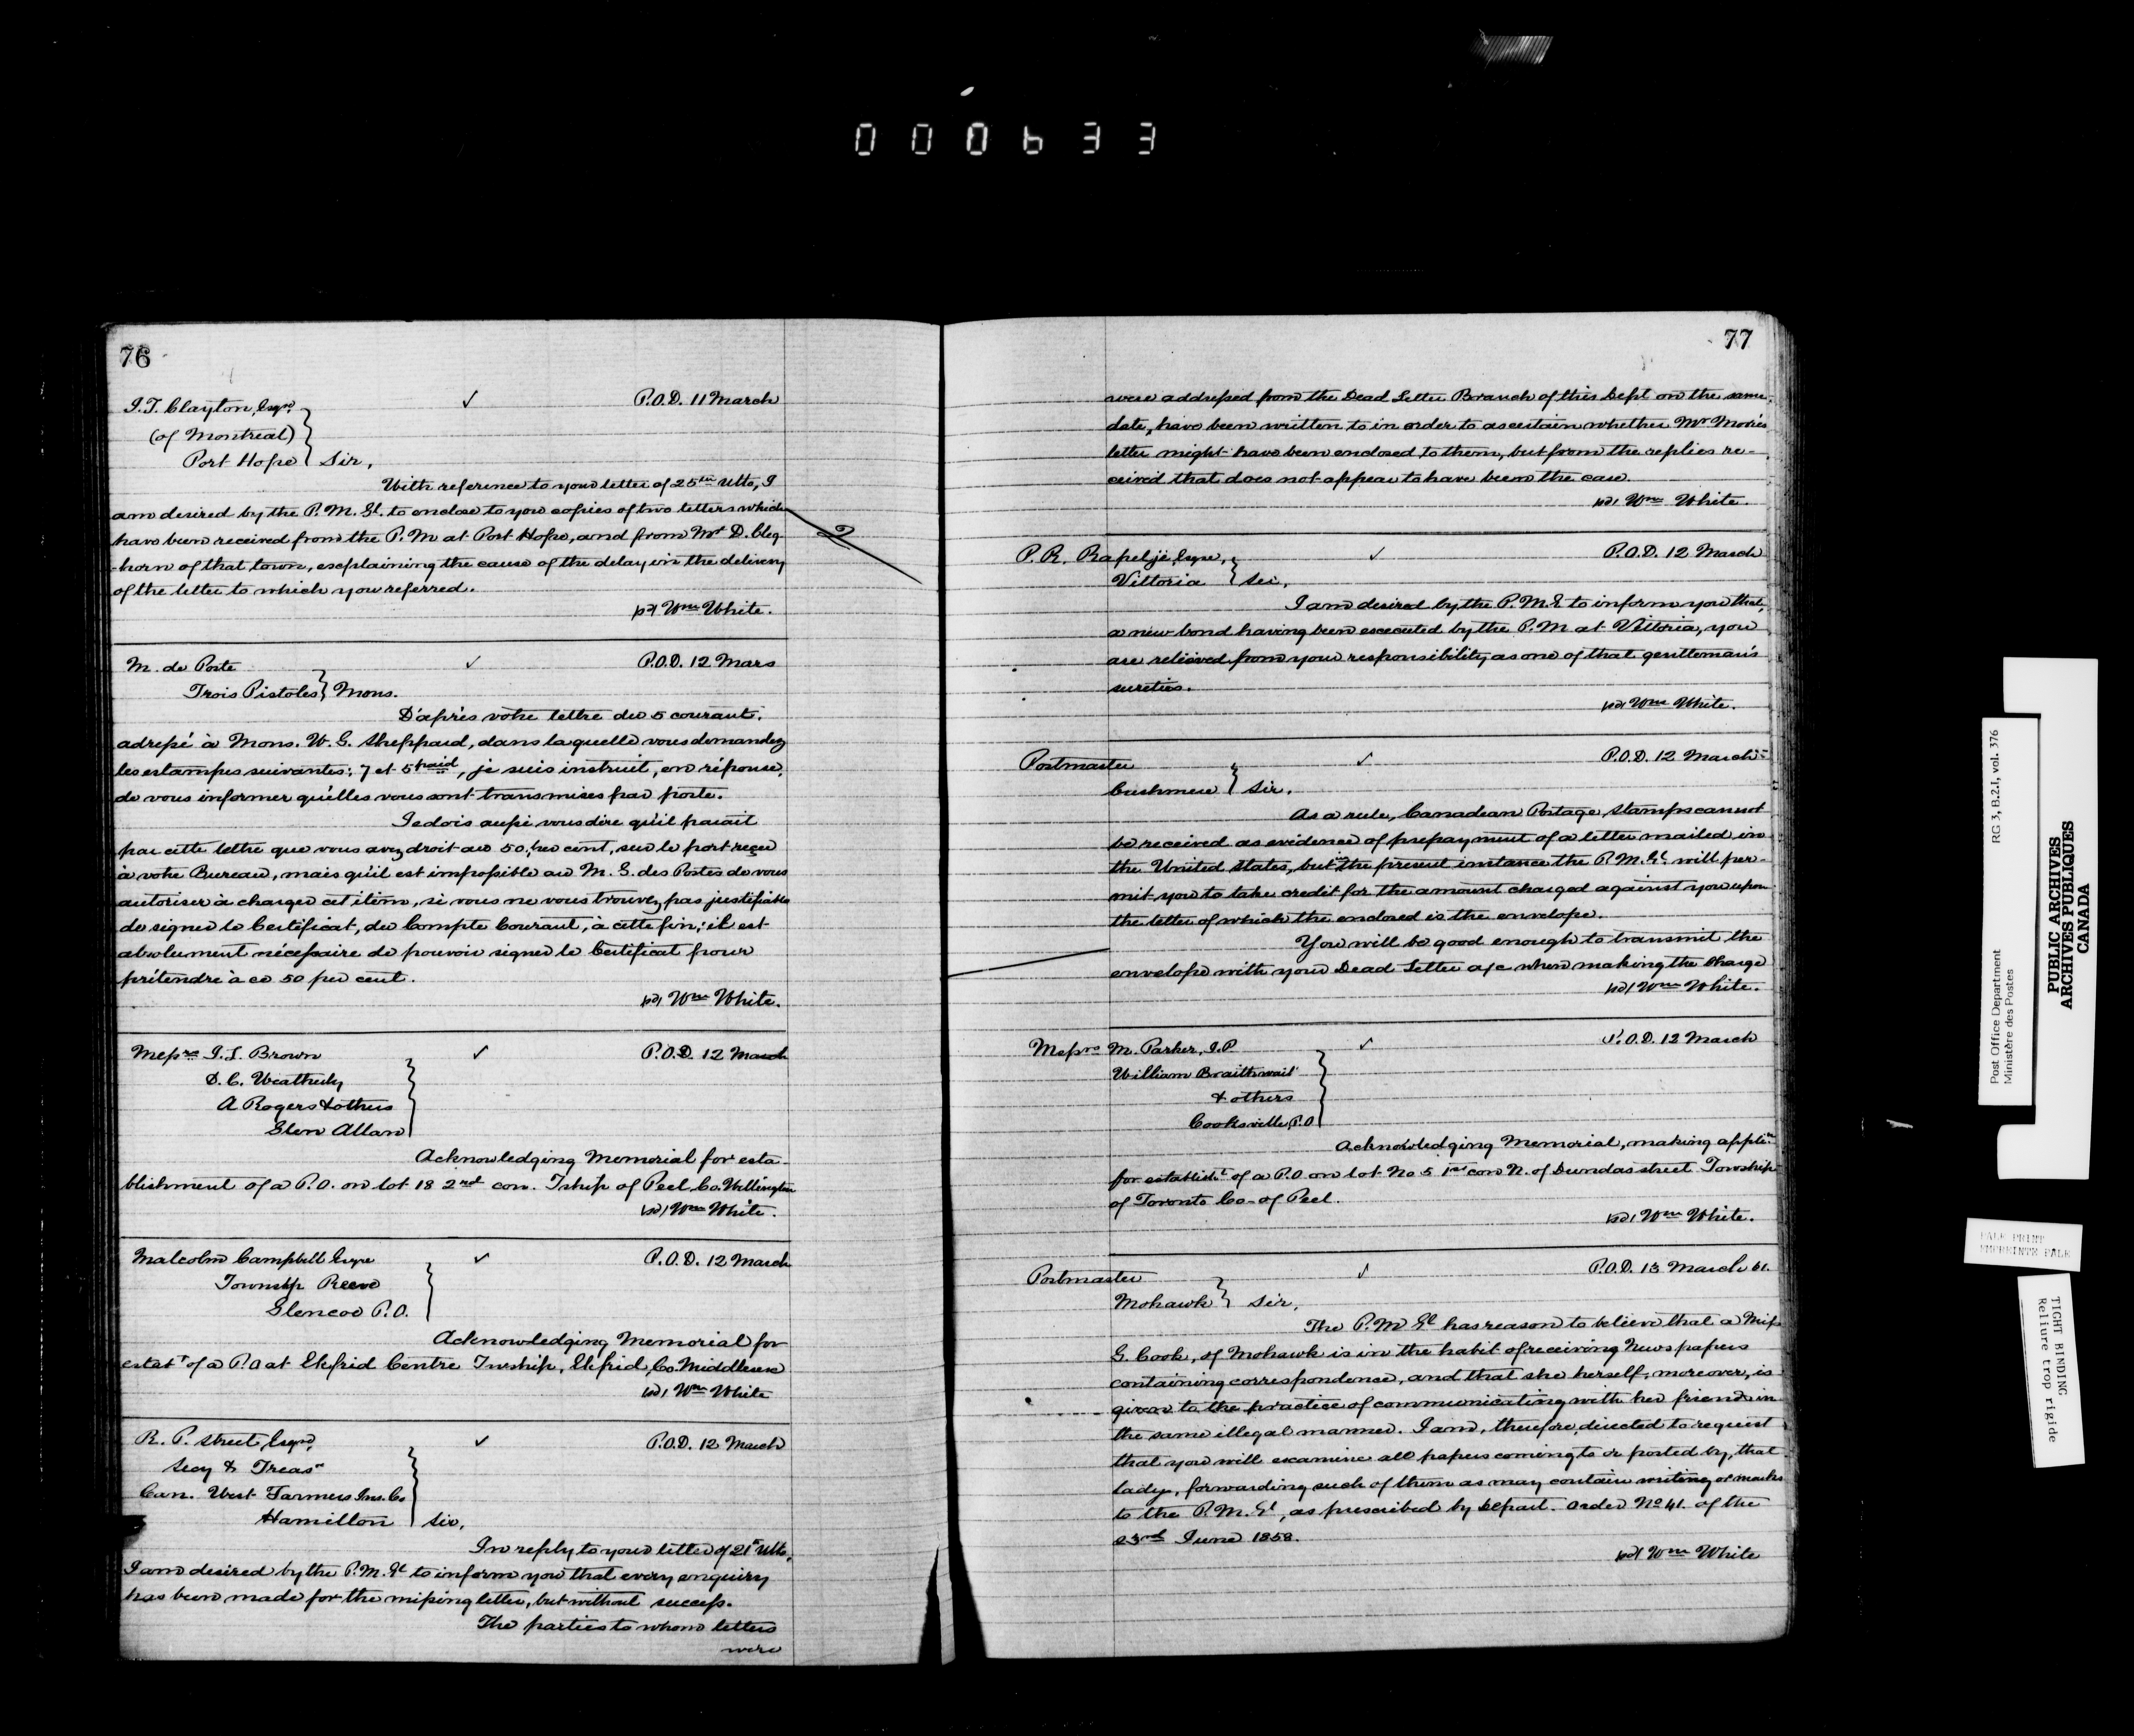 000633
76
J. T. Clayton, Esqre.
P.O.D. 11 March
(of Montreal)
Port Hope
Sir,
With reference to your letter of 25th Ulto, I
am desired by the P. M. Gl. to enclose to you copies of two letters which
have been received from the P. M at Port Hope, and from Mr D. Cleg-
-horn of that town, explaining the cause of the delay in the delivery
of the letter to which you referred.
sd/ Wm White.
M. de Poste
P.O.D. 12 Mars
Trois Pistoles
Mons.
D'après votre lettre du 5 courant,
adressé à Mons. W. G. Sheppard, dans laquelle vous demandez
les estampes suivantes: 7 et 5 paid, je suis instruit, en réponse,
de vous informer qu'elles vous sont transmises par poste.
Je dois aussi vous dire qu'il parait
par cette lettre que vous avez droit au 50 per cent, sur le port reçu
à votre Bureau, mais qu'il est impossible au M. G. des Postes de vous
autoriser à charger cet itêm, si vous ne vous trouvez pas justifiable
de signer le Certificat, du Compte Courant, à cette fin; il est
absolument nécessaire de pouvoir signer le Certificat pour
prétendre à ce 50 per cent.
sd/ Wm White.
Messrs J. L. Brown
P.O.D. 12 March
D. C. Weatherly
A Rogers & others
Glen Allan
Acknowledging Memorial for esta-
blishment of a P.O. on lot 18 2nd con. Tship of Peel, Co. Wellington
sd/ Wm White.
Malcolm Campbell Esqre
P.O.D. 12 March
Township Reeve
Glencoe P.O.
Acknowledging Memorial for
estabt of a P.O at Ekfrid Centre Twship, Ekfrid, Co. Middlesex
sd/ Wm White
R. P. Street, Esqre,
P.O.D. 12 March
Secy & Treasr
Can. West Farmers Ins. Co
Hamilton
Sir,
In reply to your letter of 21st Ulto,
I am desired by the P. M. Gl to inform you that every enquiry
has been made for the missing letter, but without success.
The parties to whom letters
were
77
were addressed from the Dead Letter Branch of this Dept on the same
date, have been written to in order to ascertain whether Mr Moore's
letter might have been enclosed to them, but from the replies re-
ceived that does not appear to have been the case.
sd/ Wm White.
P. R. Rapelje, Esqre,
P.O.D. 12 March
Vittoria
Sir,
I am desired by the P. M. G to inform you that,
a new bond having been executed by the P. M at Vittoria, you
are relieved from your responsibility as one of that gentleman's
sureties.
sd/ Wm White.
Postmaster
P.O.D. 12 March
Sir.
As a rule, Canadian Postage Stamps cannot
be received as evidence of prepayment of a letter mailed in
the United States, but in the present instance the P. M. Gl will per-
mit you to take credit for the amount charged against you upon
the letter of which the enclosed is the envelope.
You will be good enough to transmit the
envelope with your Dead Letter a/c when making the Charge
sd/ Wm White.
Messrs M. Parker, J.P.
P.O.D. 12 March
William Braithwait
& others
Cooksville P.O
Acknowledging Memorial, making applin
for establisht of a P.O on lot No 5 1st con N. of Dundas street Township
of Toronto Co- of Peel.
sd/ Wm White.
Postmaster
P.O.D. 13 March 61.
Mohawk
Sir,
The P. M Gl has reason to believe that a Miss
G. Cook, of Mohawk is in the habit of receiving Newspapers
containing correspondence, and that she herself, moreover, is
given to the practice of communicating with her friends in
the same illegal manner. I am, therefore, directed to request
that you will examine all papers coming to or posted by, that
lady, forwarding such of them as may contain writing or marks
to the P. M. Gl, as prescribed by Depart. Order No 41. of the
23rd June 1858.
sd/ Wm White
Post Office Department
Ministère des Postes
RG 3, B.2.1, vol. 376
PUBLIC ARCHIVES
ARCHIVES PUBLIQUES
CANADA
PALE PRINT
EMPREINTE PALE
TIGHT BINDING
Reliure trop rigide